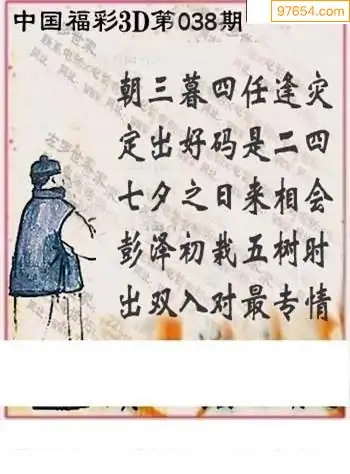 97654.com
中国福彩3D第038期
朝三暮四任逢灾
定出好码是二四
七夕之日来相会
彭泽初栽五树时
出双入对最专情